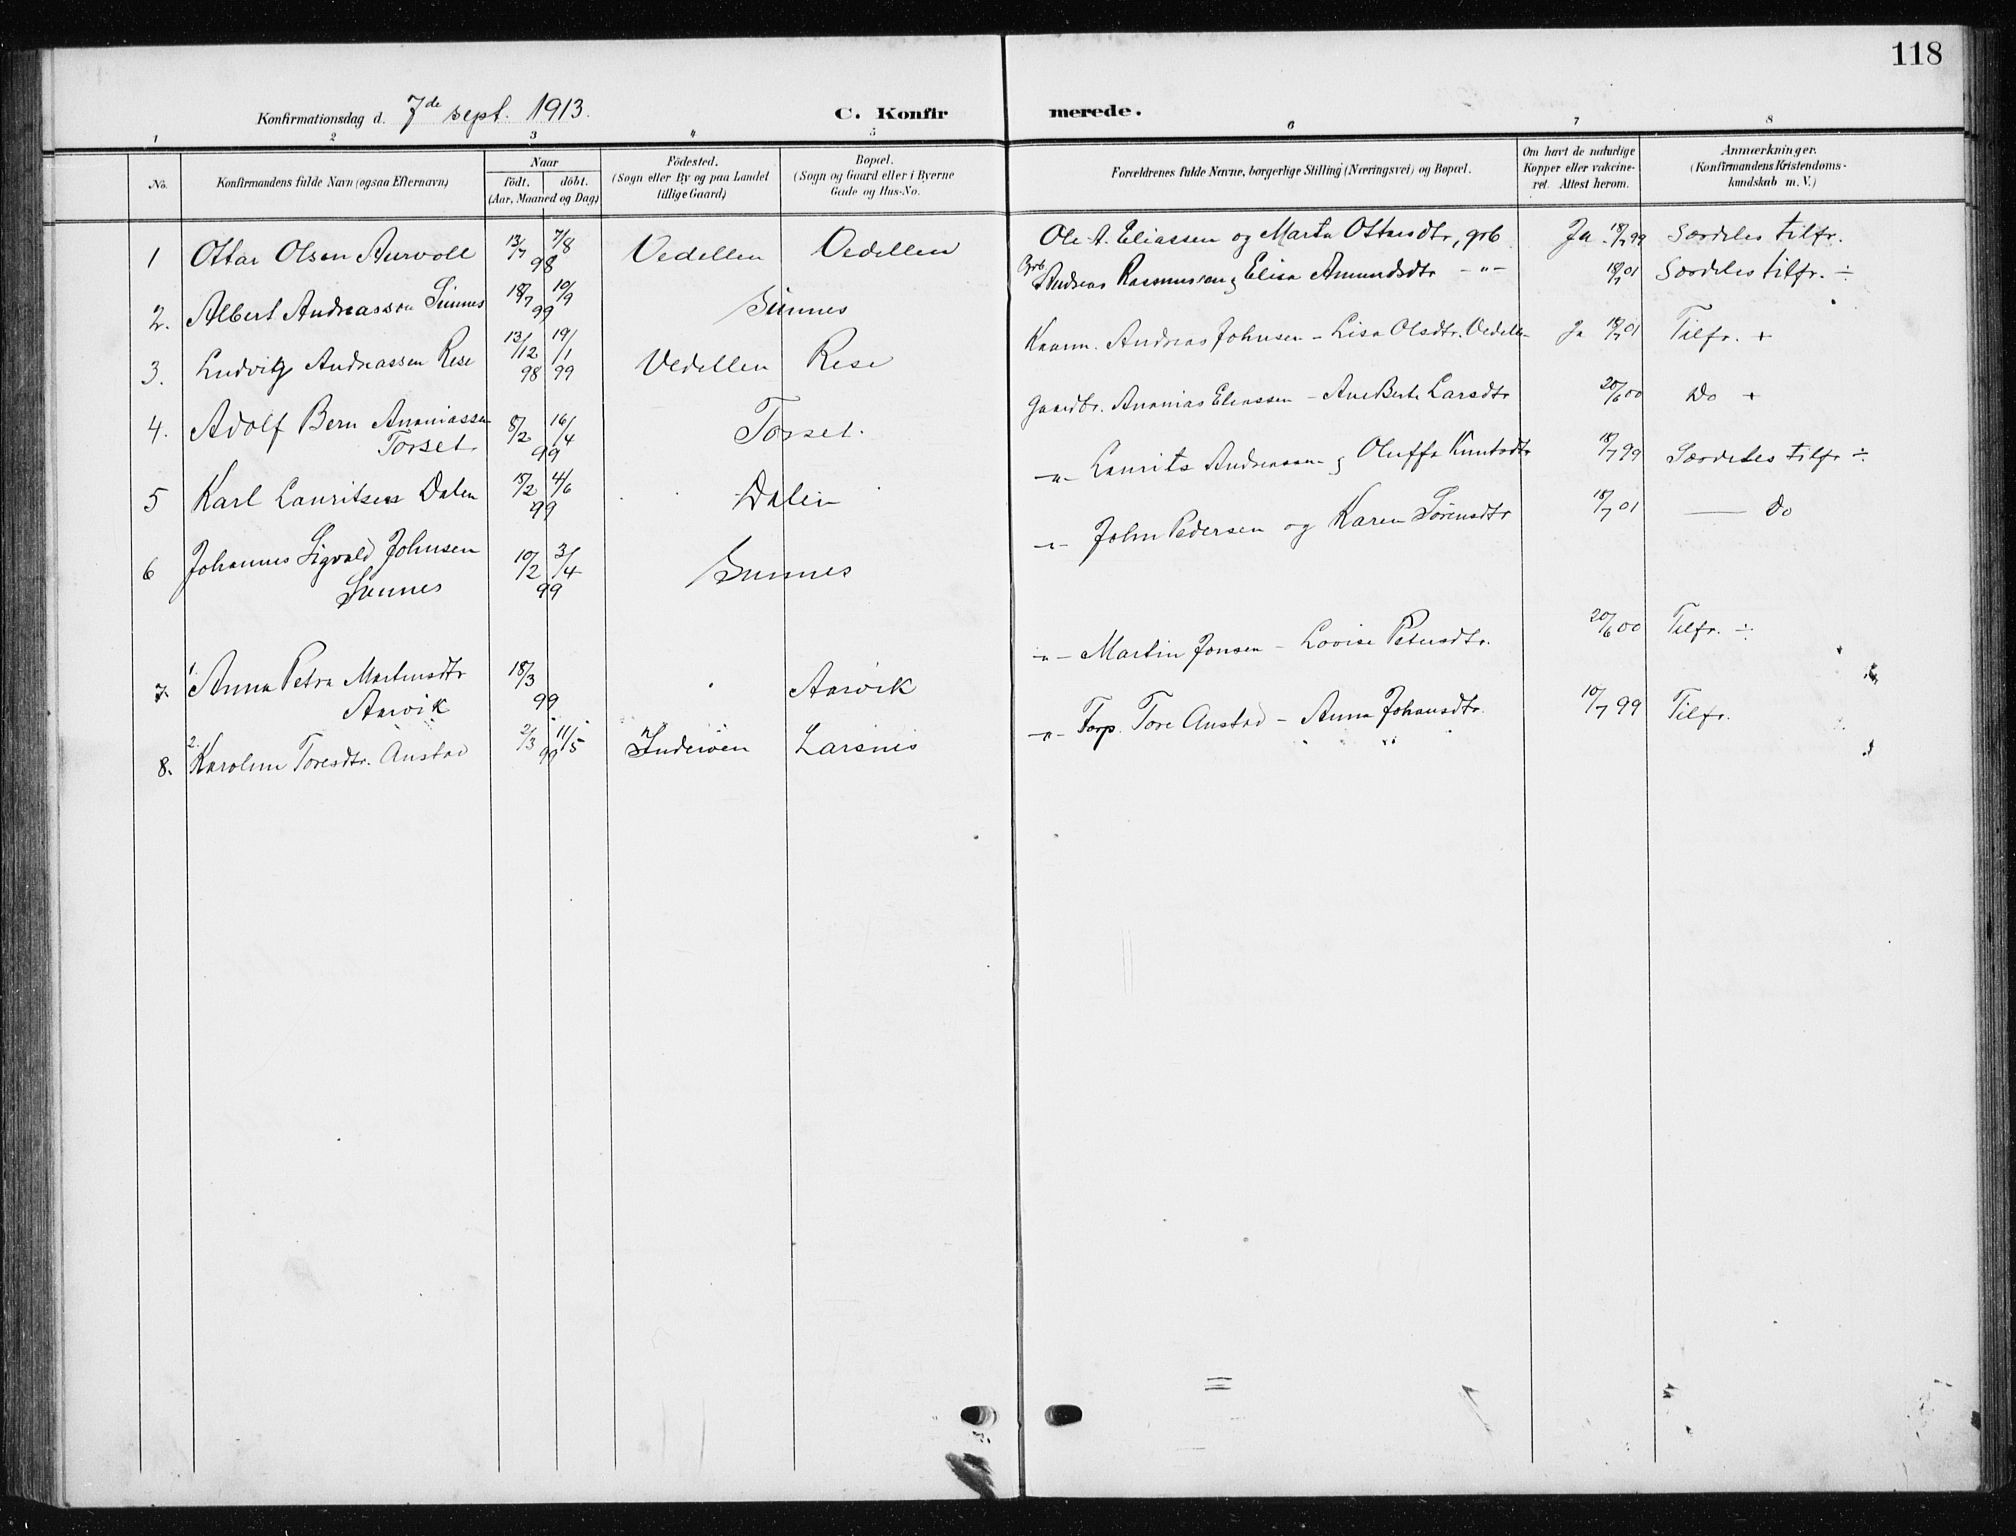 118
Konfirmationsdag d. 7de sept. 1913.
C. Konfirmerede.
1 2 3 4 5 6 7 8
No.
Konfirmandens fulde Navn (ogsaa Efternavn)
Naar
födt. döbt.
(Aar, Maaned og Dag)
Födested.
(Sogn eller By og paa Landet
tillige Gaard)
Bopæl.
(Sogn og Gaard eller i Byerne
Gade og Hus-No.
Forældrenes fulde Navne, borgerlige Stilling (Næringsvei) og Bopæl.
Om havt de naturlige
Kopper eller vakcine-
ret. Attest herom.
Anmærkninger.
(Konfirmandens Kristendoms-
kundskab m. V.)
1 Ottar Olsen Aurvoll 13/7 7/8 98 Vedellen Vedellen Ole A. Eliassen og Marta Ottarsdtr, grb Ja 18/7 99 Særdeles tilfr.
2. Albert Andreassen Sunnes 18/7 10/9 99 Sunnes Grb Andreas Rasmussen og Elisa Amundsdtr -"- 18/7 01 Særdeles tilfr. ÷
3. Ludvig Andreassen Rese 13/12 98 19/1 99 Vedellen Rese Kaarm. Andreas Johnsen - Lisa Olsdtr. Ja 18/7 01 Tilfr. +
4. Adolf Bern Ananiassen
Torset. 8/2 16/4 99 Torset. Gaardbr. Ananias Eliassen - Ane Berte Larsdtr 20/6 00 Do +
5 Karl Lauritsen Dalen 15/2 4/6 99 Dalen -"- Laurits Andreassen og Oluffa Knutsdtr 18/7 99 Særdeles tilfr ÷
6 Johannes Sigvald Johnsen
Sunnes 10/2 3/4 99 Sunnes -"- John Pedersen og Karen Sörensdtr 18/7 01 — Do
7. 1. Anna Petra Martinsdtr
Aarvik 18/3 99 Aarvik -"- Martin Jonsen - Lovise Petersdtr. 20/6 00 Tilfr. ÷
8. 2. Karoline Toresdtr. Austad 2/3 11/5 99 Inderöen Larsnes -"- Forp. Tore Austad - Anna Johansdtr. 10/7 99 Tilfr.